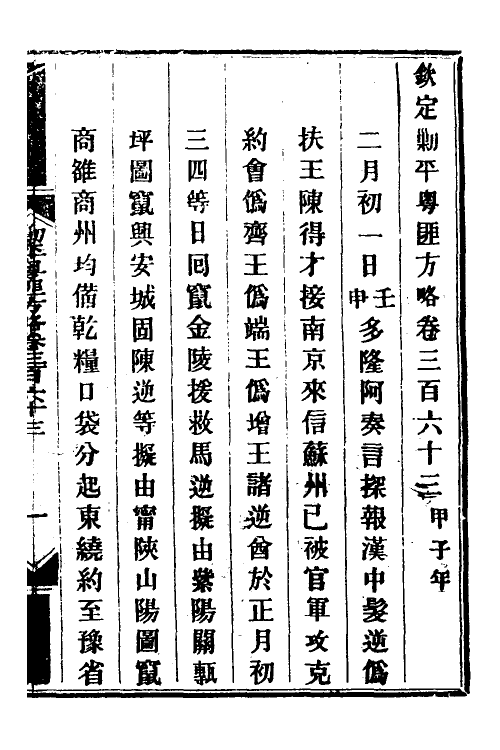 欽定勦平粵匪方略卷三百六十三甲子年
二月初一日壬申多隆阿奏言探報漢中髮逆偽
扶王陳得才接南京來信蘇州已被官軍攻克
約會偽齊王偽端王偽增王諸逆酋於正月初
三四等日回竄金陵援救馬逆擬由紫陽關甎
坪圖竄興安城固陳逆等擬由甯陝山陽圖竄
商雒商州均備乾糧口袋分起東繞約至豫省
欽定勦平粵匪方略卷三百六十三
一